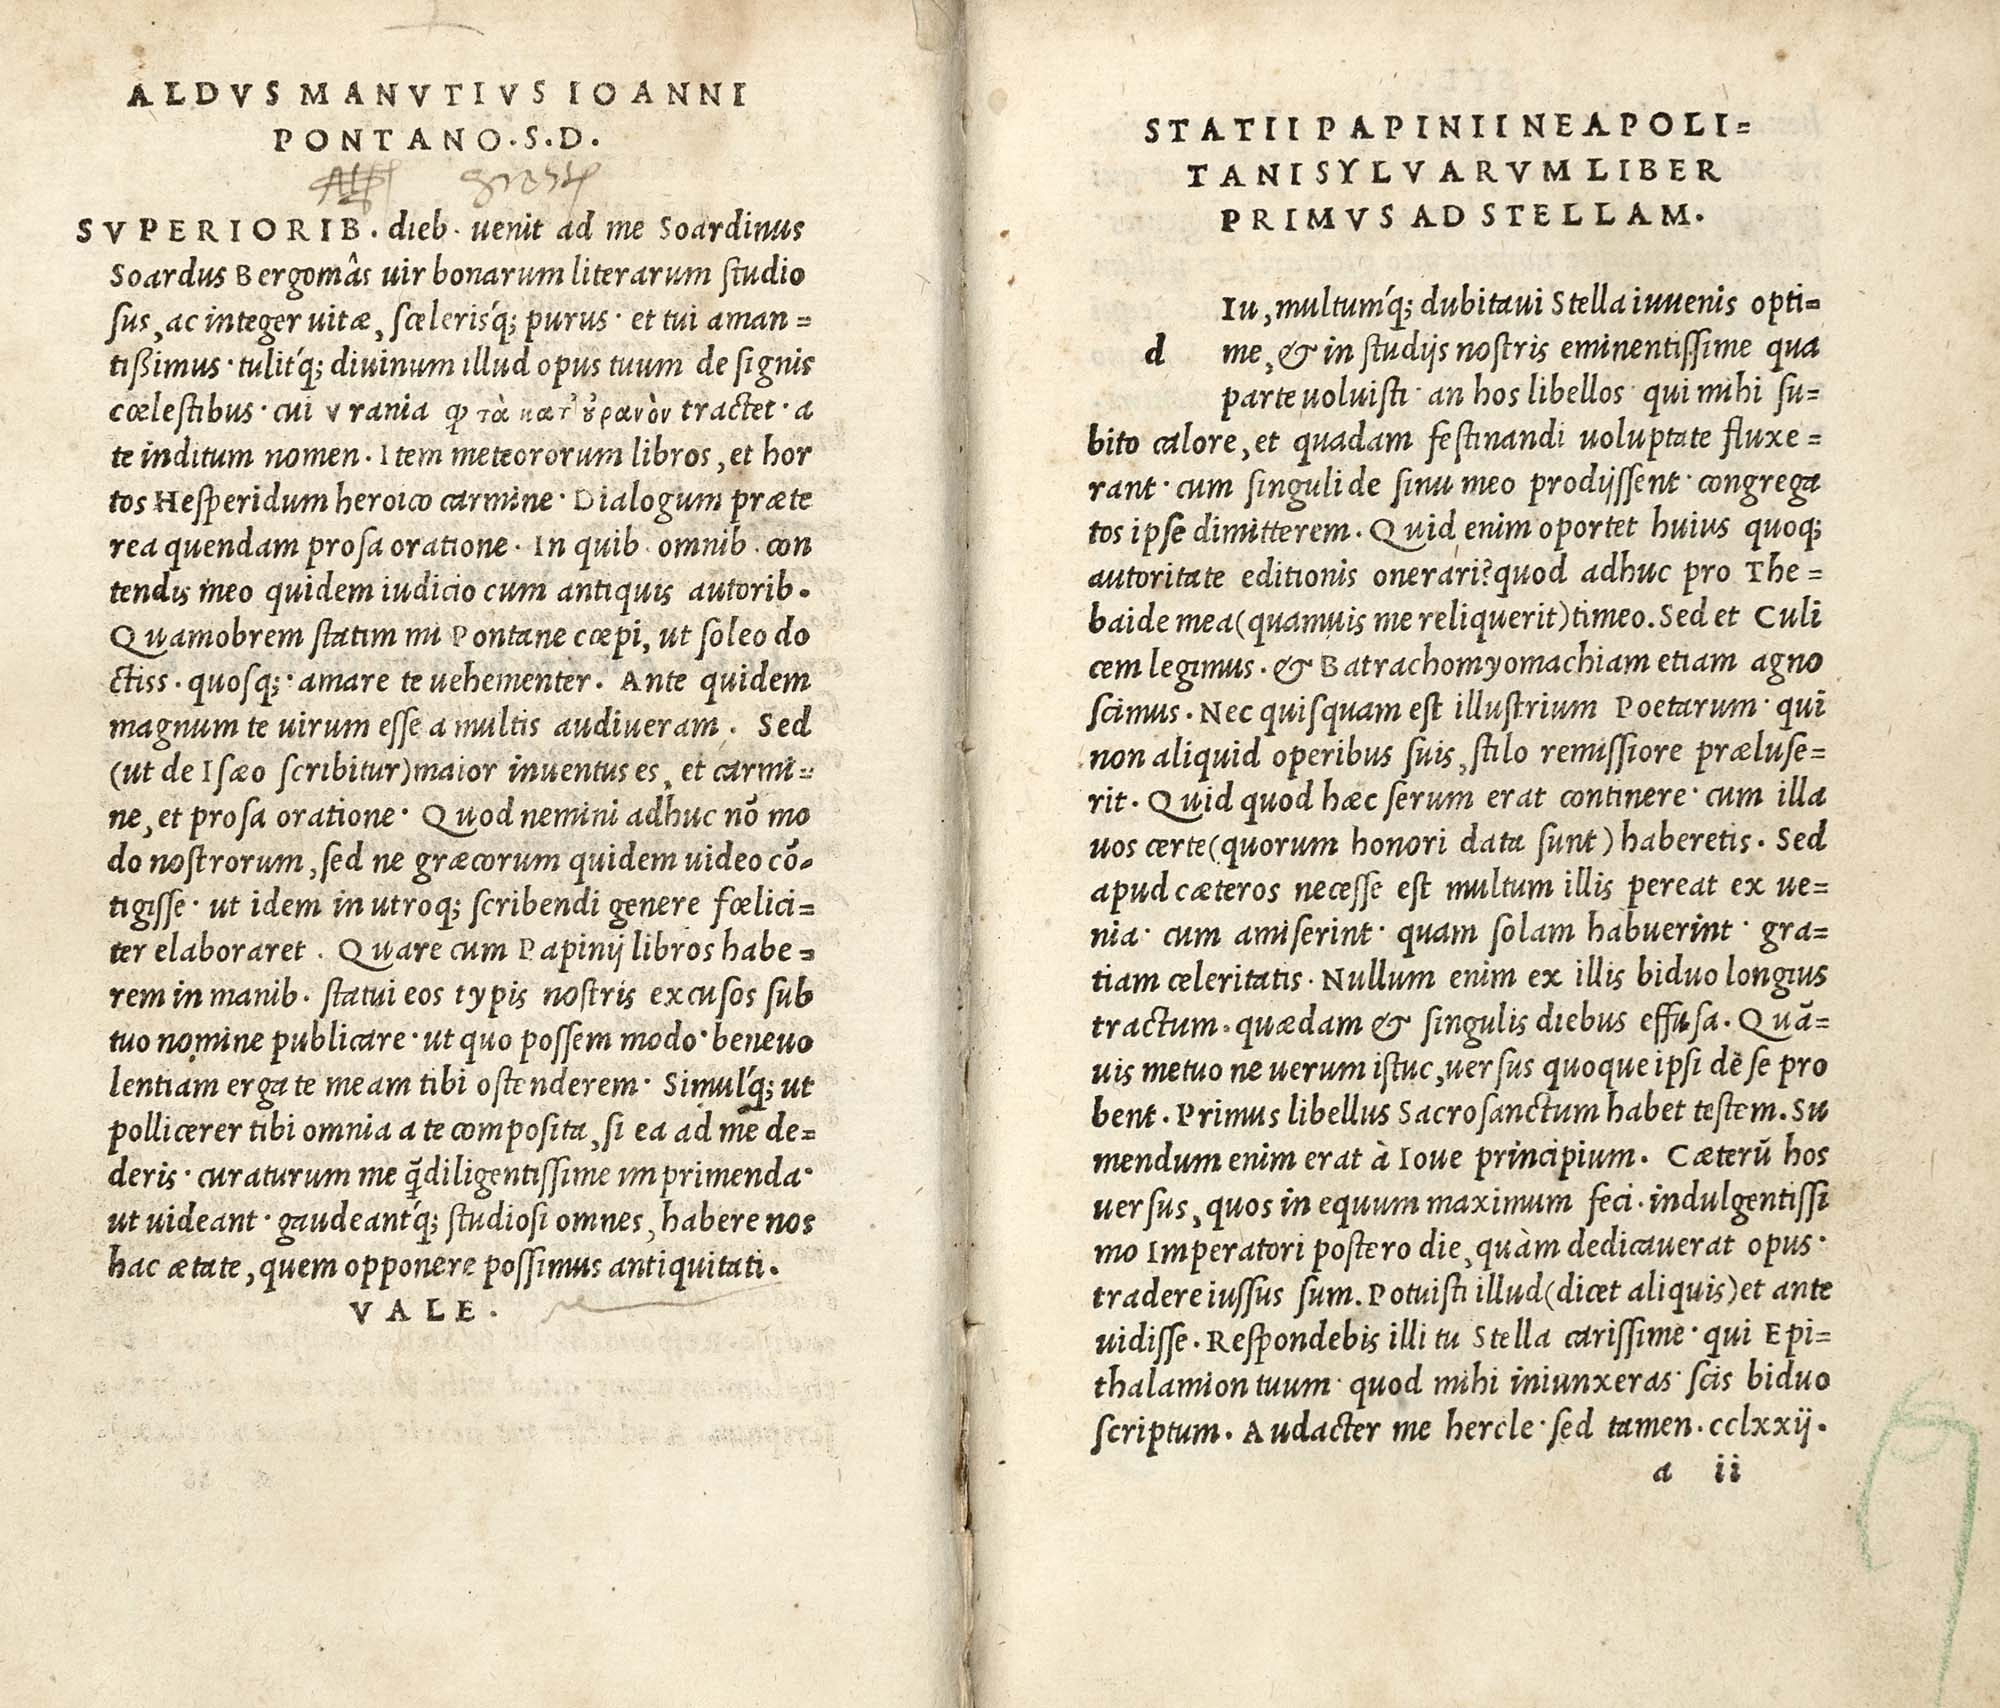 ALDVS MANVTIVS IOANNI
PONTANO.S.D.
SVPERIORIB. dieb. uenit ad me Soardinus
Soardus Bergomâs uir bonarum literarum studio
sus, ac integer uitæ, scelerisq́; purus· et tui aman=
tißimus· tulitq́; diuinum illud opus tuum de signis
cœlestibus· cui Vrania ꝙ τὰ κατ' οὐρανὸν tractet· a
te inditum nomen. Item meteororum libros, et hor
tos Hesperidum heroico carmine· Dialogum præte
rea quendam prosa oratione· In quib. omnib. con
tendis meo quidem iudicio cum antiquis autorib.
Quamobrem statim mi Pontane cœpi, ut soleo do
ctiss. quosq;· amare te uehementer. Ante quidem
magnum te uirum esse a multis audiueram. Sed
(ut de Isæo scribitur) maior inuentus es, et carmi=
ne, et prosa oratione· Quod nemini adhuc nō mo
do nostrorum, sed ne græcorum quidem uideo cō-
tigisse· ut idem in utroq; scribendi genere fœlici=
ter elaboraret. Quare cum Papinij libros habe=
rem in manib. statui eos typis nostris excusos sub
tuo nomine publicare· ut quo possem modo· beneuo
lentiam erga te meam tibi ostenderem· Simulq́; ut
pollicerer tibi omnia a te composita, si ea ad me de=
deris· curaturum me q̄diligentissime imprimenda·
ut uideant· gaudeantq́; studiosi omnes, habere nos
hac ætate, quem opponere possimus antiquitati.
VALE.
STATII PAPINII NEAPOLI=
TANI SYLVARVM LIBER
PRIMVS AD STELLAM.
Iu, multumq́; dubitaui Stella iuuenis opti=
d me, & in studijs nostris eminentissime qua
parte uoluisti· an hos libellos· qui mihi su=
bito calore, et quadam festinandi uoluptate fluxe=
rant· cum singuli de sinu meo prodijssent· congrega
tos ipse dimitterem. Quid enim oportet huius quoq;
autoritate editionis onerari? quod adhuc pro The=
baide mea (quamuis me reliquerit) timeo. Sed et Culi
cem legimus. & Batrachomyomachiam etiam agno
scimus. Nec quisquam est illustrium Poetarum· qui
non aliquid operibus suis, stilo remissiore præluse=
rit. Quid quod hæc serum erat continere· cum illa
uos certe (quorum honori data sunt) haberetis. Sed
apud cæteros necesse est multum illis pereat ex ue=
nia· cum amiserint· quam solam habuerint· gra=
tiam celeritatis. Nullum enim ex illis biduo longius
tractum. quædam & singulis diebus effusa. Quā=
uis metuo ne uerum istuc, uersus quoque ipsi de se pro
bent. Primus libellus Sacrosanctum habet testem. Su
mendum enim erat à Ioue principium. Cæterū hos
uersus, quos in equum maximum feci. indulgentissi
mo Imperatori postero die, quàm dedicauerat opus·
tradere iussus sum. Potuisti illud (dicet aliquis) et ante
uidisse. Respondebis illi tu Stella carissime· qui Epi=
thalamion tuum· quod mihi iniunxeras· scis biduo
scriptum. Audacter me hercle· sed tamen. cclxxij.
a ii